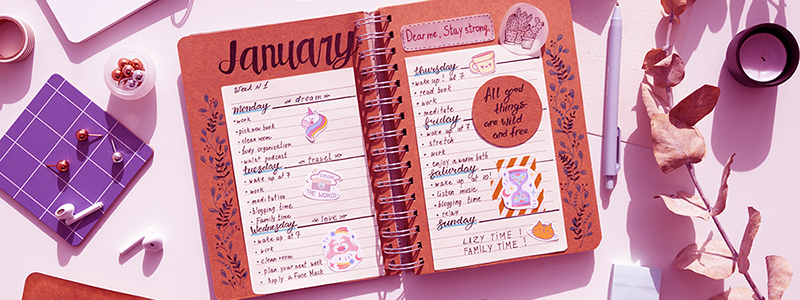 January
Week N1
Monday
dream
work
pick new book
clean room
body organizer
watch podcast
tuesday
travel
wake up at 7
work
meditation
blogging time
Family time
Wednesday
love
wake up at 7
work
clean room
plan your next week
Apply a Face Mask
THE WORLD
Dear me, Stay strong.
thursday
wake up! at 7
read book
work
meditate
friday
wake up at 7
stretch
work
enjoy a warm bath
Saturday
wake up at 10!
listen music
blogging time
relax
Sunday
LAZY TIME!
FAMILY TIME!
All good
things
are wild
and free